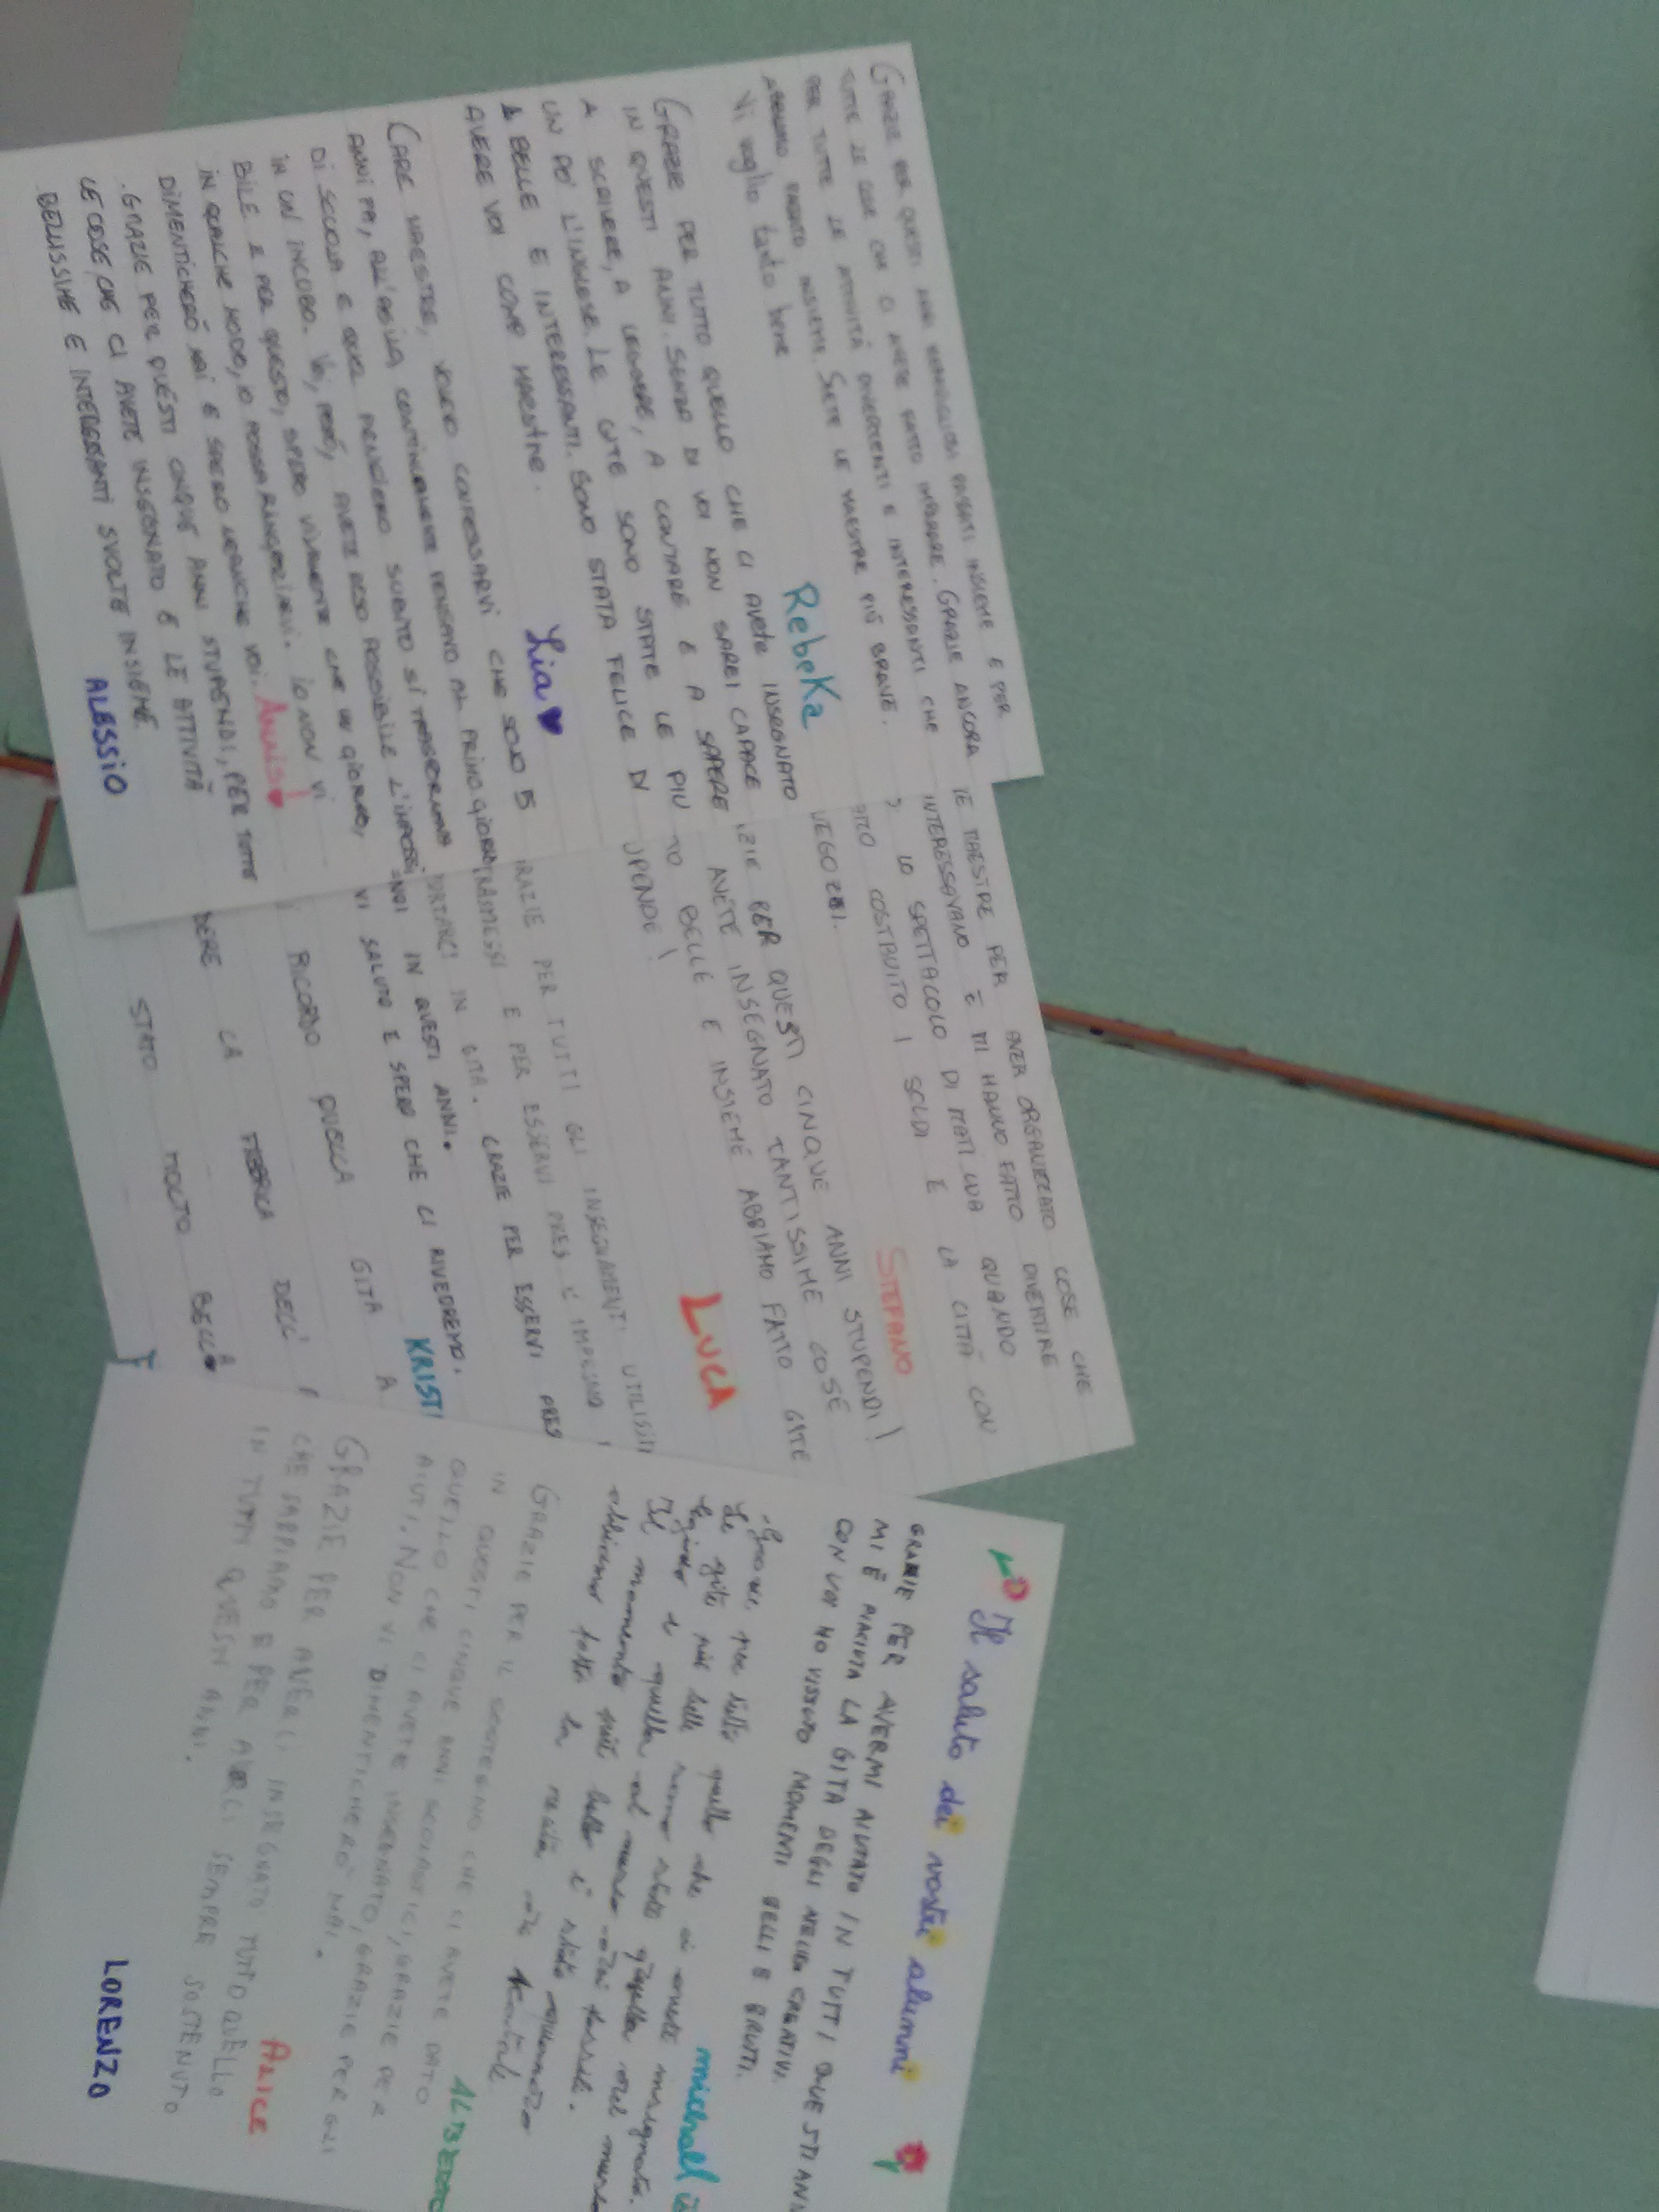 Il saluto dei vostri alunni
GRAZIE PER AVERMI AIUTATO IN TUTTI QUESTI ANN
MI È PIACIUTA LA GITA DEGLI NELLA CREATIVI.
CON VOI HO VISSUTO MOMENTI BELLI E BRUTTI.
michael
-Grazie per tutto quello che ci avete insegnato.
Le gite più belle sono state quella sul
e quella al museo dei fossili.
Il momento più bello è stato quando
abbiamo fatto la
GRAZIE PER IL SOSTEGNO CHE CI AVETE DATO
IN QUESTI CINQUE ANNI SCOLASTICI, GRAZIE PER
QUELLO CHE CI AVETE INSEGNATO, GRAZIE PER GLI
AIUTI. NON VI DIMENTICHERÒ MAI.
ALBERTO
GRAZIE PER AVERCI INSEGNATO TUTTO QUELLO
CHE SAPPIAMO E PER AVERCI SEMPRE SOSTENUTO
IN TUTTI QUESTI ANNI.
ALICE
LORENZO
TE MAESTRE PER AVER ORGANIZZATO COSE CHE
INTERESSAVANO E MI HANNO FATTO DIVERTIRE
LO SPETTACOLO DI MATILDA QUANDO
COSTRUITO I SOLDI E LA CITTÀ CON
NEGOZI.
STEFANO
ZIE PER QUESTI CINQUE ANNI STUPENDI!
AVETE INSEGNATO TANTISSIME COSE
TO BELLE E INSIEME ABBIAMO FATTO GITE
UPENDE!
LUCA
RAZIE PER TUTTI GLI INSEGNAMENTI UTILISSI
TRASMESSI E PER ESSERVI PRES L'IMPEGNO
PORTARCI IN GITA. GRAZIE PER ESSERVI PRES
IN QUESTI ANNI.
VI SALUTO E SPERO CHE CI RIVEDREMO.
KRISTI
RICORDO QUELLA GITA A
DERE LA FABBRICA DELL'
STATO MOLTO BELLA
GRAZIE PER QUESTI ANNI MERAVIGLIOSI PASSATI INSIEME E PER
TUTTE LE COSE CHE CI AVETE FATTO IMPARARE. GRAZIE ANCORA
PER TUTTE LE ATTIVITÀ DIVERTENTI E INTERESSANTI CHE
ABBIAMO FATTO INSIEME. SIETE LE MAESTRE PIÙ BRAVE.
Vi voglio tanto bene
RebeKa
GRAZIE PER TUTTO QUELLO CHE CI AVETE INSEGNATO
IN QUESTI ANNI. SENZA DI VOI NON SAREI CAPACE
A SCRIVERE, A LEGGERE, A CONTARE E A SAPERE
UN PO' L'INGLESE. LE GITE SONO STATE LE PIÙ
BELLE E INTERESSANTI. SONO STATA FELICE DI
AVERE VOI COME MAESTRE.
Lia
CARE MAESTRE, VOLEVO CONFESSARVI CHE SOLO 5
ANNI FA, ALL'ASILO, CONTINUAMENTE PENSAVO AL PRIMO GIORNO
DI SCUOLA E QUEL PENSIERO SUBITO SI TRASFORMAVA
IN UN INCUBO. VOI, PERÒ, AVETE RESO POSSIBILE L'IMPOSSI
BILE E PER QUESTO, SPERO VIVAMENTE CHE UN GIORNO,
IN QUALCHE MODO, IO POSSA RINGRAZIARVI. IO NON VI
DIMENTICHERÒ MAI E SPERO NEANCHE VOI.
Annis
.GRAZIE PER QUESTI CINQUE ANNI STUPENDI, PER TUTTE
LE COSE CHE CI AVETE INSEGNATO E LE ATTIVITÀ
BELLISSIME E INTERESSANTI SVOLTE INSIEME.
ALESSIO